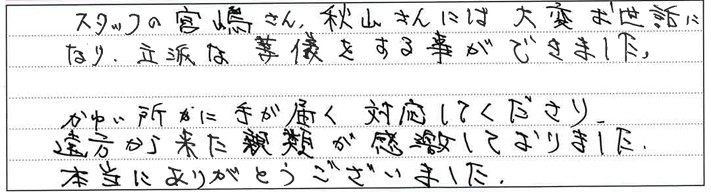 スタッフの宮嶋さん、秋山さんには大変お世話に
なり、立派な葬儀をする事ができました。
かゆい所かに手が届く対応してくださり、
遠方から来た親類が感激しておりました。
本当にありがとうございました。